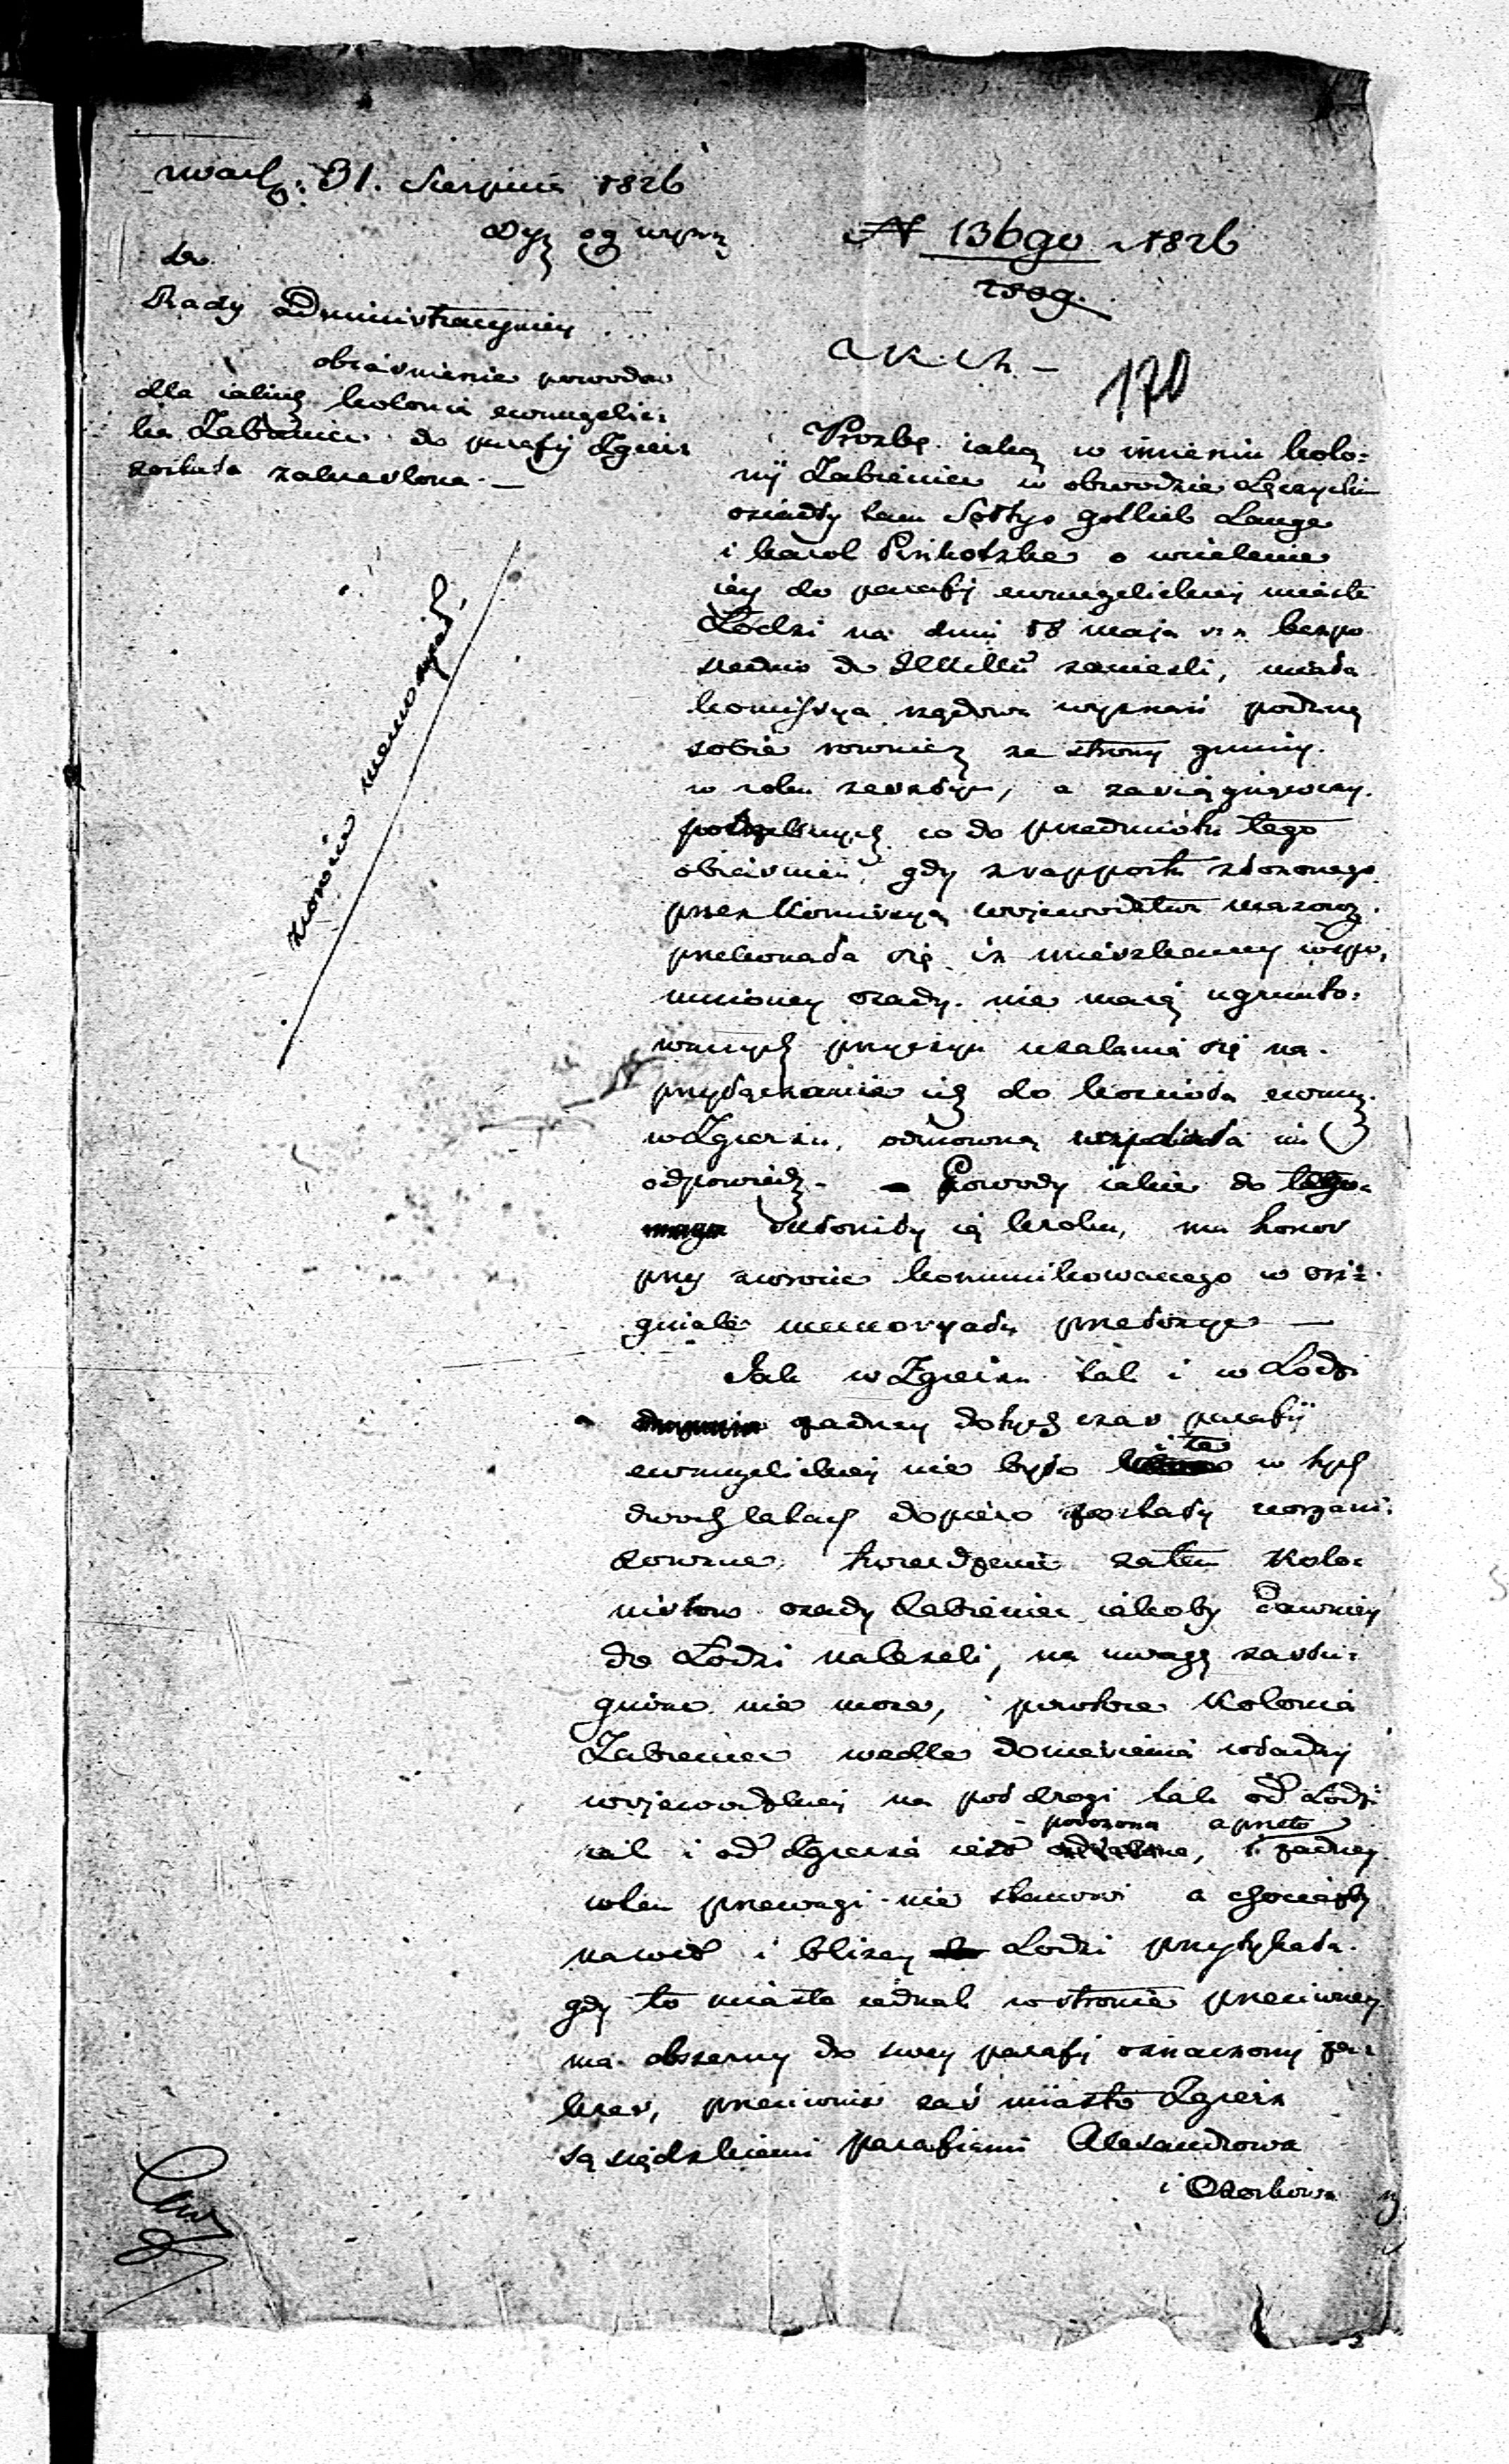 31. Sierpnia 1826
do
Rady Administracyiney
obiaśnienie powodów
dla iakich kolonia ewangelic:
ka Żabieniec do parafij Zgierz
została zakreslona. —
zwrócić memoryał.
N 136go 1826
170
Prozbę iaką w imieniu kolo:
nij Żabieniec w obwodzie Łęczyckim
osiadły tam Sołtys Gottlieb Lange
i Karol o wcielenie
iey do parafij ewangelickiey miasta
Łodzi na dniu 18 maja r. b. bezpo
srednio do zanieśli, miała
Kommissya rządowa wyznań podaną
sobie rownież ze strony gminy
w roku zeszłym, a zasiągnąwszy
potrzebnych co do przedmiotu tego
obiaśnień, gdy z rapportu złożonego
przez Komissyą wojewodztwa mazow:
przekonała się iż mieszkańcy wspo,
mnioney osady nie maią ugrunto:
wanych przyczyn użalania się na
przyłączenie ich do kościoła ewang:
w Zgierzu, odmowną im
odpowiedz. — Powody iakie do tego
skłoniły ią kroku, ma honor
przy zwrocie kommunikowanego w ory:
ginale memoryału przełożyć —
Jak w Zgierzu tak i w Łodzi
żadney dotych czas parafij
ewangelickiey nie było i te w tych
dwoch latach dopiero zostały uorgani:
zowane, twierdzenie zatem Kolo:
nistow osady Żabieniec iakoby dawniey
do Łodzi należeli, na uwagę zasłu:
giwać nie może, powtore Kolonia
Żabieniec wedle doniesienia władzy
wojewodzkiey na pół drogi tak od Łodzi
iak i od Zgierza iest położona a przeto żadney
w tem przewagi nie stanowi a chociażby
nawet i bliżey Łodzi przytykała
gdy to miasto iednak w stronie przeciwney
ma obszerny do swey parafij oznaczony za:
kres, przeciwnie zaś miasto Zgierz
sąsiedzkiemi parafiami Alexandrowa
i Ozorkowa